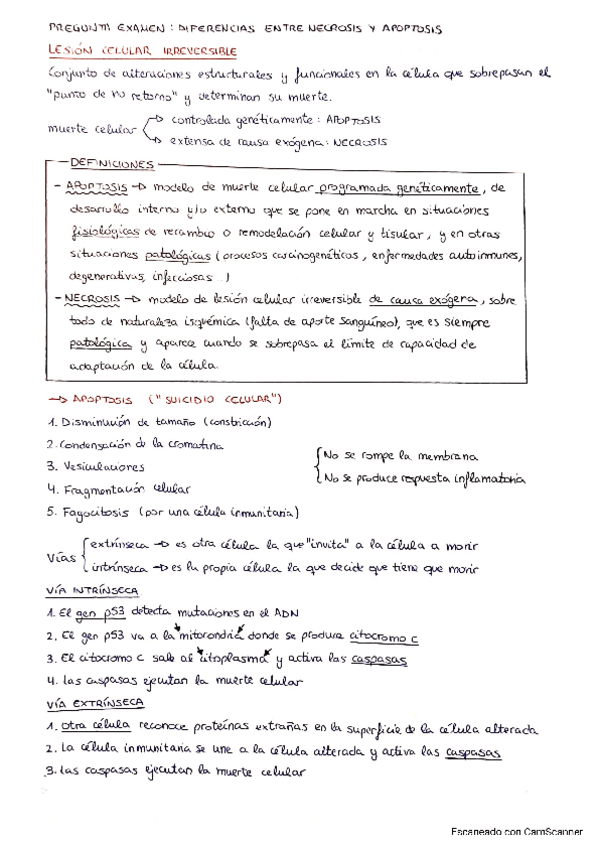 PREGUNTA EXAMEN: DIFERENCIAS ENTRE NECROSIS Y APOPTOSIS
LESIÓN CELULAR IRREVERSIBLE
Conjunto de alteraciones estructurales y funcionales en la célula que sobrepasan el
"punto de no retorno" y determinan su muerte.
muerte celular
→ controlada genéticamente: APOPTOSIS
→ extensa de causa exógena: NECROSIS
DEFINICIONES
- APOPTOSIS → modelo de muerte celular programada genéticamente, de
desarrollo interno y/o externo que se pone en marcha en situaciones
fisiológicas de recambio o remodelación celular y tisular, y en otras
situaciones patológicas (procesos carcinogenéticos, enfermedades autoinmunes,
degenerativas, infecciosas...)
- NECROSIS → modelo de lesión celular irreversible de causa exógena, sobre
todo de naturaleza isquémica (falta de aporte sanguíneo), que es siempre
patológica y aparece cuando se sobrepasa el límite de capacidad de
adaptación de la célula.
→ APOPTOSIS ("SUICIDIO CELULAR")
1. Disminución de tamaño (constricción)
2. Condensación de la cromatina
3. Vesiculaciones
4. Fragmentación celular
5. Fagocitosis (por una célula inmunitaria)
No se rompe la membrana
No se produce respuesta inflamatoria
Vías
extrínseca → es otra célula la que "invita" a la célula a morir
intrínseca → es la propia célula la que decide que tiene que morir
VÍA INTRÍNSECA
1. El gen p53 detecta mutaciones en el ADN
2. El gen p53 va a la mitocondria donde se produce citocromo c
3. El citocromo c sale al citoplasma y activa las caspasas
4. Las caspasas ejecutan la muerte celular
VÍA EXTRÍNSECA
1. Otra célula reconoce proteínas extrañas en la superficie de la célula alterada
2. La célula inmunitaria se une a la célula alterada y activa las caspasas
3. Las caspasas ejecutan la muerte celular
Escaneado con CamScanner